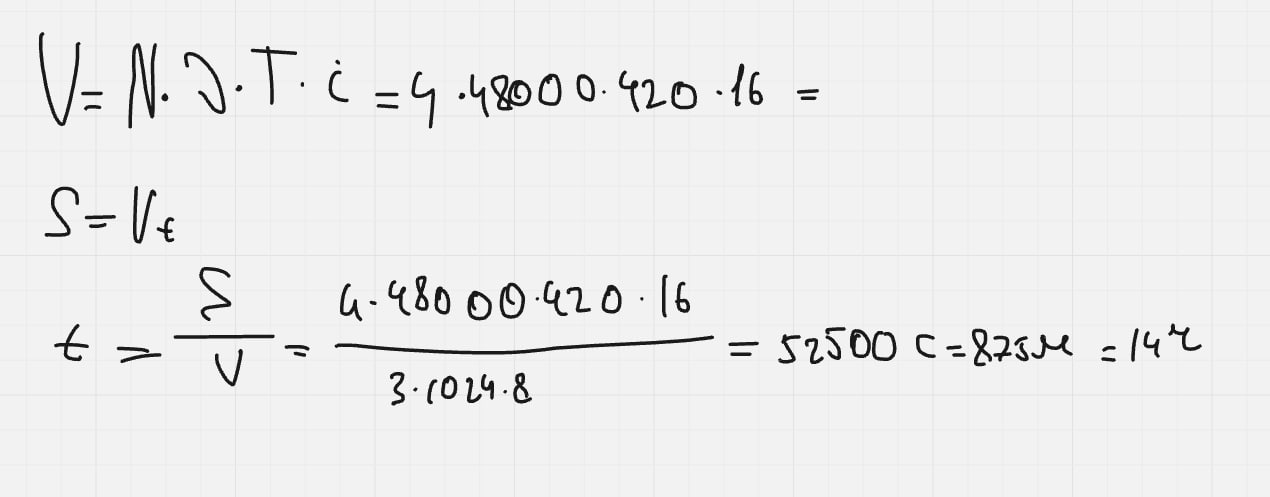 V = N · J · T · i = 4 · 48000 · 420 · 16 =
S = Vt
t = S / V = 4 · 48000 · 420 · 16 / 3 · 1024 · 8 = 52500 с = 875 м = 14 ч